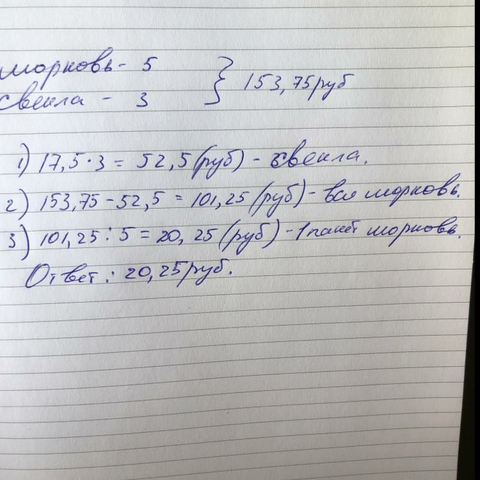 морковь - 5
свекла - 3 } 153,75 руб
1) 17,5 · 3 = 52,5 (руб) - свекла.
2) 153,75 - 52,5 = 101,25 (руб) - вся морковь.
3) 101,25 : 5 = 20,25 (руб) - 1 пакет морковь.
Ответ: 20,25 руб.